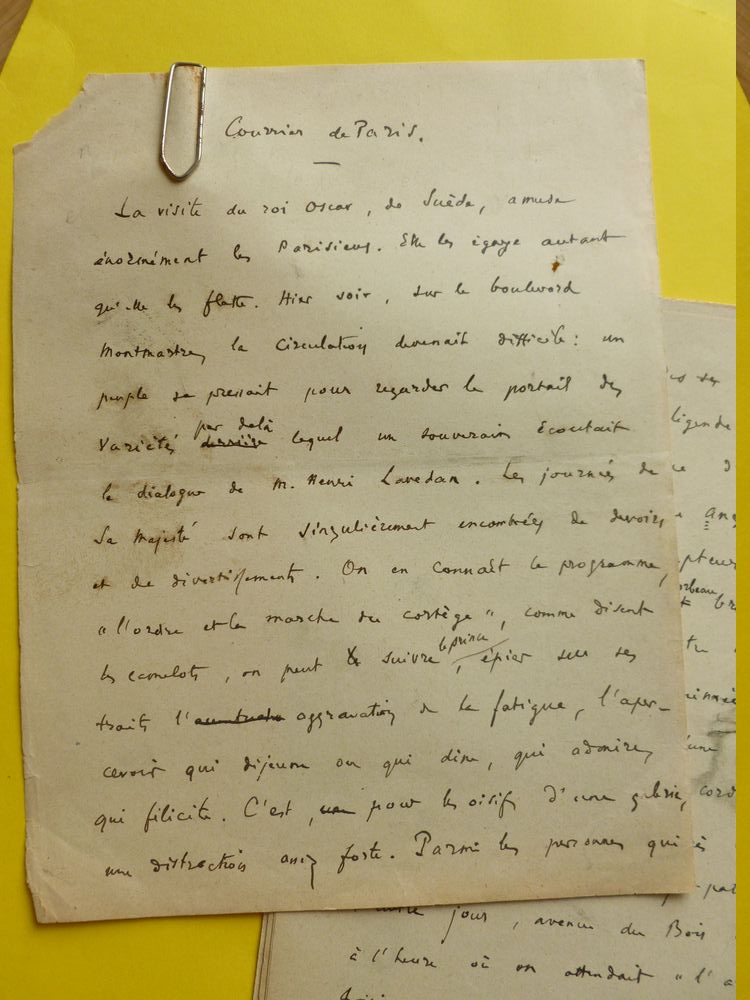 Courrier de Paris.
La visite du roi Oscar, de Suède, amuse
énormément les Parisiens. Elle les égaye autant
qu'elle les flatte. Hier soir, sur le boulevard
Montmartre, la circulation devenait difficile : un
peuple se pressait pour regarder le portail des
par delà
Variétés derrière lequel un souverain écoutait
le dialogue de M. Henri Lavedan. Les journées de
Sa Majesté sont singulièrement encombrées de devoirs
et de divertissements. On en connaît le programme,
"l'ordre et la marche du cortège", comme disent
le prince
les camelots, on peut suivre, épier sur ses
traits l' aggravation de la fatigue, l'aper-
cevoir qui déjeune ou qui dîne, qui admire,
qui félicite. C'est, pour les oisifs d'une
une distraction assez forte. Parmi les personnes qui
légende
jour, avenue du Bois
à l'heure où on attendait "l'a